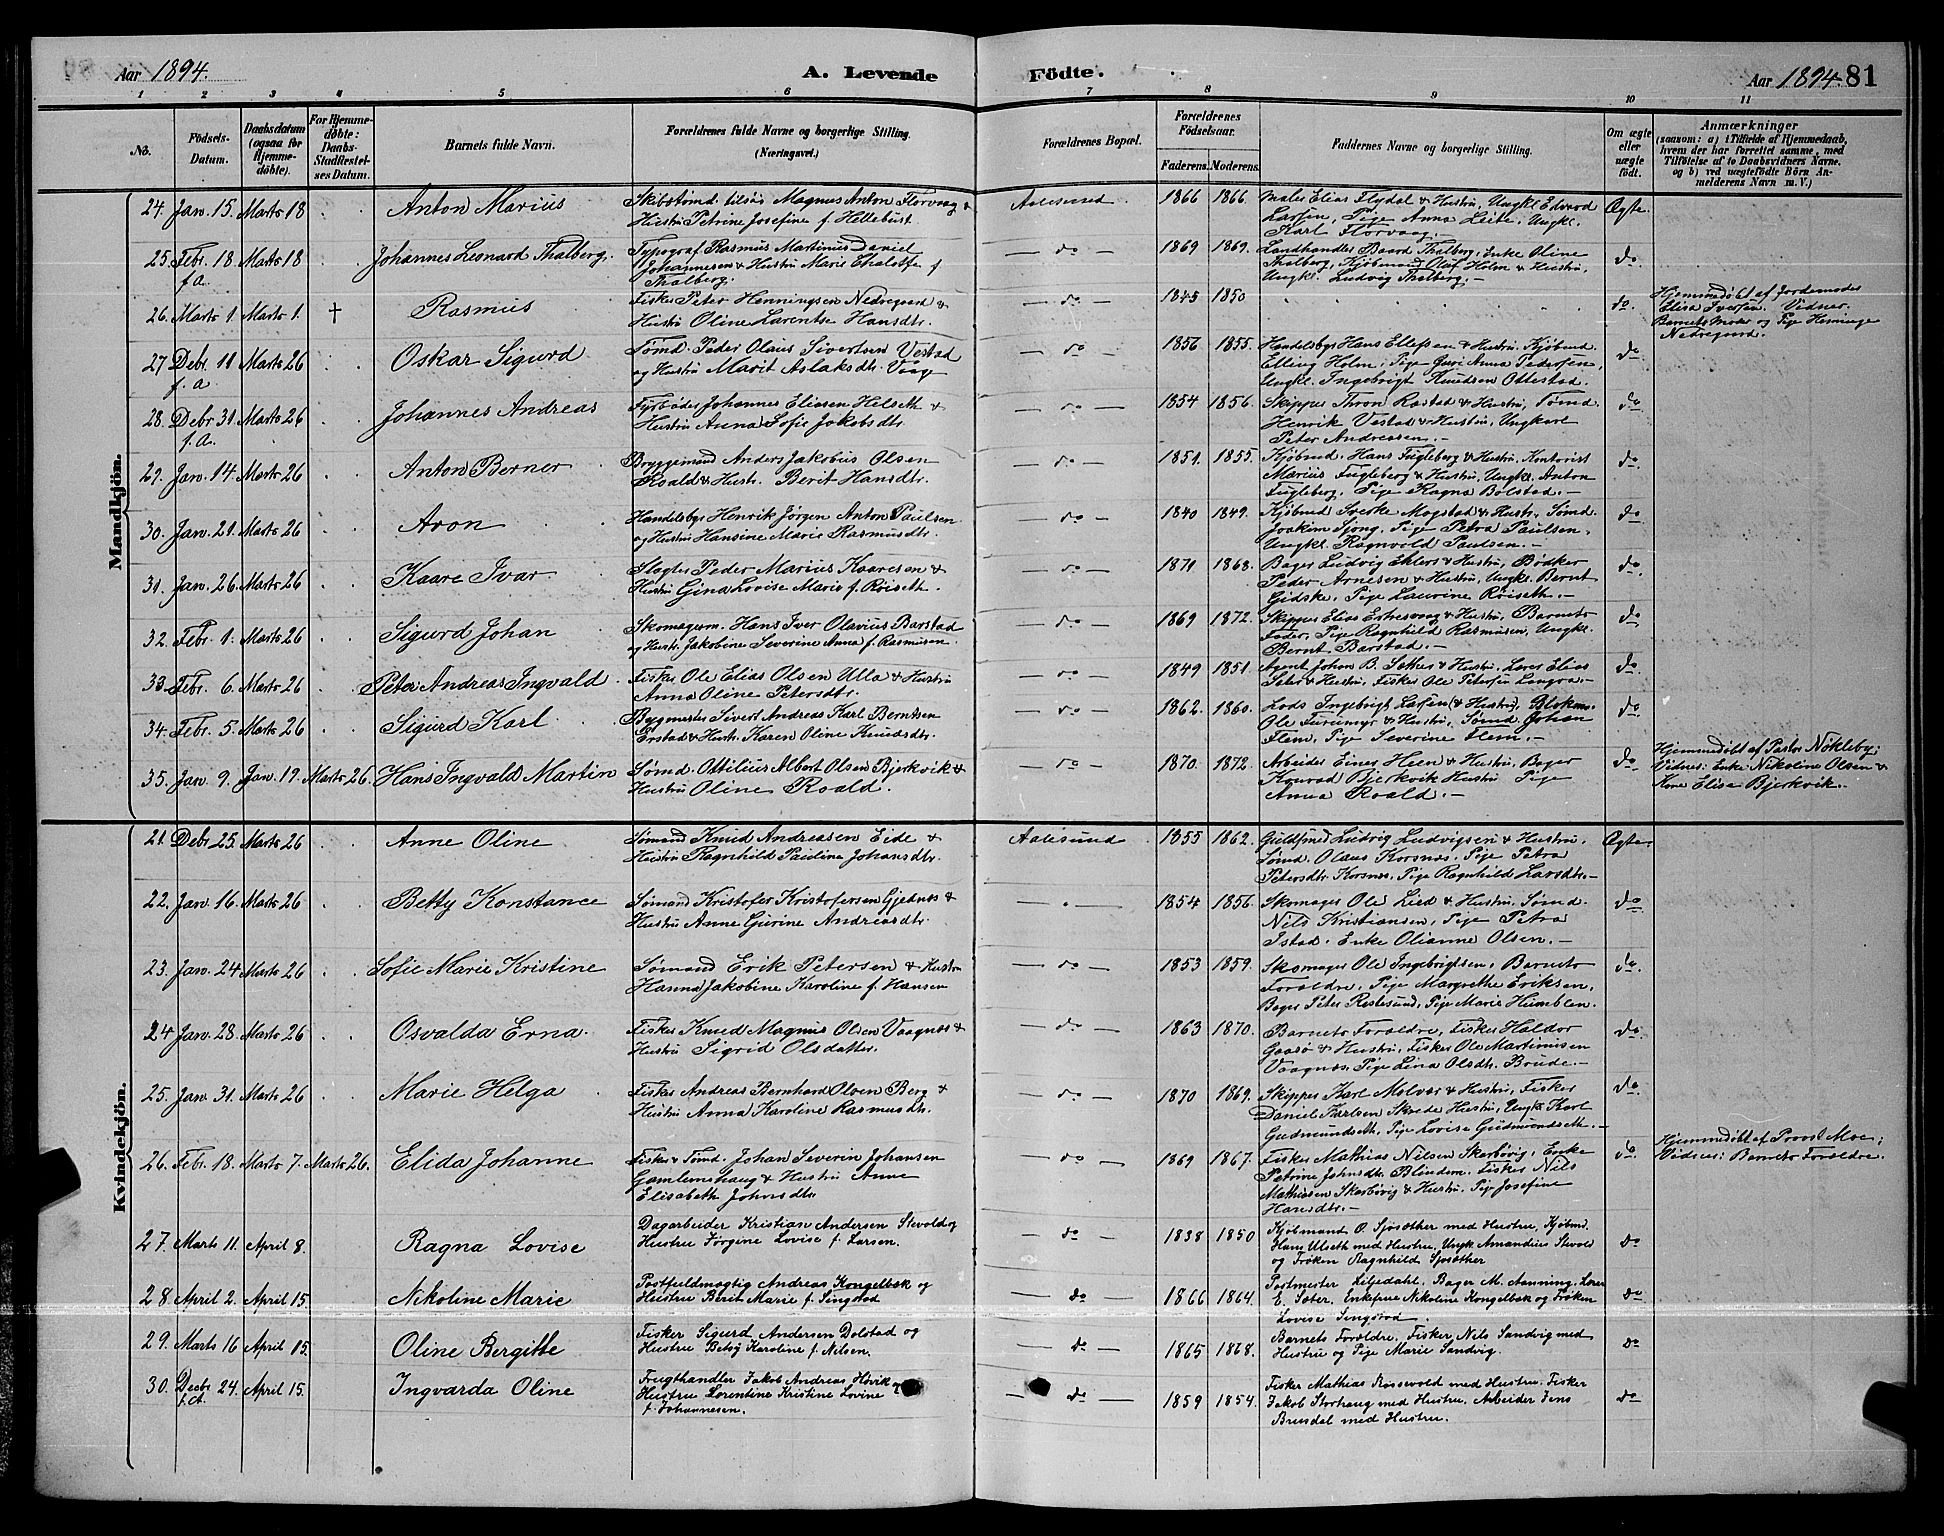 Aar 1894. A. Levende Födte. Aar 1894. 81
1 2 3 4 5 6 7 8 9 10 11
No. Födsels-Datum. Daabsdatum (ogsaa for Hjemmedöbte). For Hjemmedöbte: Daabs-Stadfæstelses Datum. Barnets fulde Navn. Forældrenes fulde Navne og borgerlige Stilling. (Næringsvei.) Forældrenes Bopæl. Forældrenes Födselsaar. Faderens. Moderens. Faddernes Navne og borgerlige Stilling. Om ægte eller uægte födt. Anmærkninger (saasom: a) i Tilfælde af Hjemmedaab, hvem der har forrettet samme, med Tilföielse af to Daabsvidners Navne. og b) ved uægtefödte Börn Anmelderens Navn m. V.)
Mandkjön.
24. Jan. 15. Marts 18 Anton Marius Skibstömd. tilsös Magnus Anton Florvaag & Aalesund 1866 1866. Maler Elias Flydal & Hustru, Ungkl. Edvard Ægte.
Hustru Petrine Josefine f. Hellebust Larsen, Pige Anna Leite, Ungkl.
Karl Florvaag.
25. Febr. 18 Marts 18 Johannes Leonard Thalberg. Typograf Rasmus Martinus Daniel — do — 1869 1869. Landhandler Baard Thalberg, Enke Oline do
f. a. Johannesen & Hustru Marie Thalberg, Kjöbmand Oluf Holm & Hustru,
Thalberg. Ungkl. Ludvig Thalberg.
26. Marts 1. Marts 1. † Rasmus Fisker Peter Henningsen Nedregaard & — do — 1845 1850 do. Hjemmedöbt af Jordemoder
Hustru Oline Larentse Hansdtr. Elisa Iversen. Vidner:
Barnets Moder og Pige Henninge
Nedregaard.
27 Debr. 11 Marts 26 Oskar Sigurd Tömd. Peder Olaus Sivertsen Vestad — do — 1856 1855. Handelsby Hans Ellefsen & Hustru, Kjöbmd. do
f. a og Hustru Marit Aslaksdtr. Elling Holm, Pige Guri Anna Pedersen,
Ungkl. Ingebrigt Knudsen Ottestad.
28. Debr 31 Marts 26 Johannes Andreas Fyrböder Johannes Eliasen Helseth & — do — 1854 1856. Skipper Thron Rastad & Hustru, Tömd. do
f. a. Hustru Anna Sofie Jakobsdtr. Henrik Vestad & Hustru, Ungkarl
Peter Andreasen.
29. Jan. 14 Marts 26 Anton Berner Bryggemand Anders Jakobus Olsen — do — 1851. 1855. Kjöbmd. Hans Fugleberg & Hustru, Kontorist do
Roald & Hustr. Berit Hansdtr. Marius Fugleberg & Hustru, Ungkl. Anton
Fugleberg, Pige Ragna Bolstad.
30. Jan. 21. Marts 26 Aron Handelsby Henrik Jörgen Anton Paulsen — do — 1840 1849. Kjöbmd Sverke Mogstad & Hustr. Sömd. do
og Hustru Hansine Marie Rasmusdtr. Joakim Sjong, Pige Petra Paulsen,
Ungkl. Ragnvald Paulsen.
31. Jan. 26. Marts 26 Kaare Ivar Slagter Peder Marius Kaaresen & — do — 1871 1868. Bager Ludvig Ehlers & Hustru, Bödker do
Hustru Gina Lovise Marie f. Röiseth. Peder Arnesen & Hustru, Ungkl. Bernt
Gidske, Pige Laurine Röiseth.
32. Febr. 1. Marts 26 Sigurd Johan Skomagerm. Hans Iver Olavius Barstad — do — 1869 1872. Skipper Elias Ertresvaag & Hustru, Barnets do
og Hustr. Jakobine Severine Anna f. Rasmusen. Fader, Pige Ragnhild Rasmusen, Ungkl.
Bernt Barstad.
33 Febr. 6. Marts 26 Peter Andreas Ingvald Fisker Ole Elias Olsen Ulla & Hustru — do — 1849 1851. Agent Johan B. Sether & Hustru, Lærer Elias do
Anna Oline Petersdtr. Seter & Hustru, Fisker Ole Petersen Langva.
34. Febr. 5. Marts 26 Sigurd Karl Bygmester Sivert Andreas Karl Berntsen — do — 1862. 1860. Lods Ingebrigt Larsen (& Hustru), Blokm. do
Erstad & Hustr. Karen Oline Knudsdtr. Ole Furumyr & Hustru, Sömd Johan
Flem, Pige Severine Flem.
35. Jan. 9. Jan. 19. Marts 26. Hans Ingvald Martin Sömd. Ottilius Albert Olsen Bjerkvik & — do — 1870. 1872. Arbeider Einer Heen & Hustru, Bager do Hjemmedöbt af Pastor Nökleby;
Hustru Oline Roald. Konrad Bjerkvik Hustru Pige Vidner: Enke Nikoline Olsen &
Anna Roald. Kone Elisa Bjerkvik.
Kvindekjön.
21. Debr. 25. Marts 26 Anne Oline Sömand Knud Andreasen Eide & Aalesund 1855 1862. Guldsmed Ludvig Ludvigsen & Hustru, Ægte.
Hustru Ragnhild Pauline Johansdtr. Sömd. Olaus Korsnes, Pige Petra
Petersdtr Korsnes, Pige Ragnhild Larsdtr.
22. Jan. 16. Marts 26 Betty Konstance Sömand Kristofer Kristofersen Gjednes & — " — 1854 1856. Skomager Ole Lied & Hustru, Sömd. do
Hustru Anne Gurine Andreasdtr. Nils Kristiansen, Pige Petra
Istad, Enke Olianne Olsen.
23. Jan. 24 Marts 26 Sofie Marie Kristine Sömand Erik Petersen & Hustru — do — 1853 1859. Skomager Ole Ingebrigtsen, Barnets do
Hanna Jakobine Karoline f. Hansen Forældre, Pige Margrethe Eriksen,
Bager Peter Restesund, Pige Marie Humblen.
24 Jan. 28. Marts 26 Osvalda Erna. Fisker Knud Magnus Olsen Vaagnes & — do — 1863 1870. Barnets Forældre, Fisker Haldor do.
Hustru Sigrid Olsdatter. Gaasö & Hustru, Fisker Ole Martinusen
Vaagnes, Pige Lina Olsdtr. Brude.
25. Jan. 31. Marts 26 Marie Helga Fisker Andreas Bernhard Olsen Berg & — do — 1870 1869. Skipper Karl Molvær & Hustru, Fisker do
Hustru Anna Karoline Rasmusdtr. Daniel Karlsen Skrede Hustru, Ungk Karl
Gudmundseth, Pige Lovise Gudmundseth.
26. Febr. 18. Marts 7. Marts 26. Elida Johanne Fisker & Tömd. Johan Severin Johansen — do — 1869 1867. Fisker Mathias Nilsen Skarbövig, Enke do Hjemmedöbt af Provst Moe;
Gamlemshaug & Hustru Anne Petrine Johnsdtr Blindem, Fisker Nils Vidner: Barnets Forældre.
Elisabeth Johnsdtr. Mathiasen Skarbövig & Hustru, Pige Josefine
Hansdtr.
27. Marts 11. April 8. Ragna Lovise Dagarbeider Kristian Andersen Stevold og do 1838 1850 Kjöbmand O. Sjosæther med Hustru, Kjöbmd.
Hustru Jörgine Lovise f. Larsen. Hans Ulseth med Hustru, Ungk Amandius Stevold do
og Fröken Ragnhild Sjosæther
28. April 2. April 15. Nikoline Marie Postfuldmægtig Andreas Kongelbæk og — do — 1866 1864. Postmester Liljedahl, Bager M. Aanning, Lærer do
Hustru Berit Marie f. Singstad E. Sæter, Enkefrue Nikoline Kongelbæk og Fröken
Lovise Singstad.
29. Marts 16 April 15. Oline Bergitte Fisker Sigurd Andersen Dolstad og — do — 1865 1868. Barnets Forældre, Fisker Nils Sandvig med do
Hustru Betsy Karoline f. Nilsen. Hustru og Pige Marie Sandvig.
30. Decbr. 24. April 15. Ingvarda Oline Frugthandler Jakob Andreas Hovik og — do — 1859 1854. Fisker Mathias Rossevold med Hustru, Fisker do
f. A. Hustru Lorentine Kristine Lovine Jakob Storhaug med Hustru, Arbeider Jens
f. Johannesen. Brusdal med Hustru.